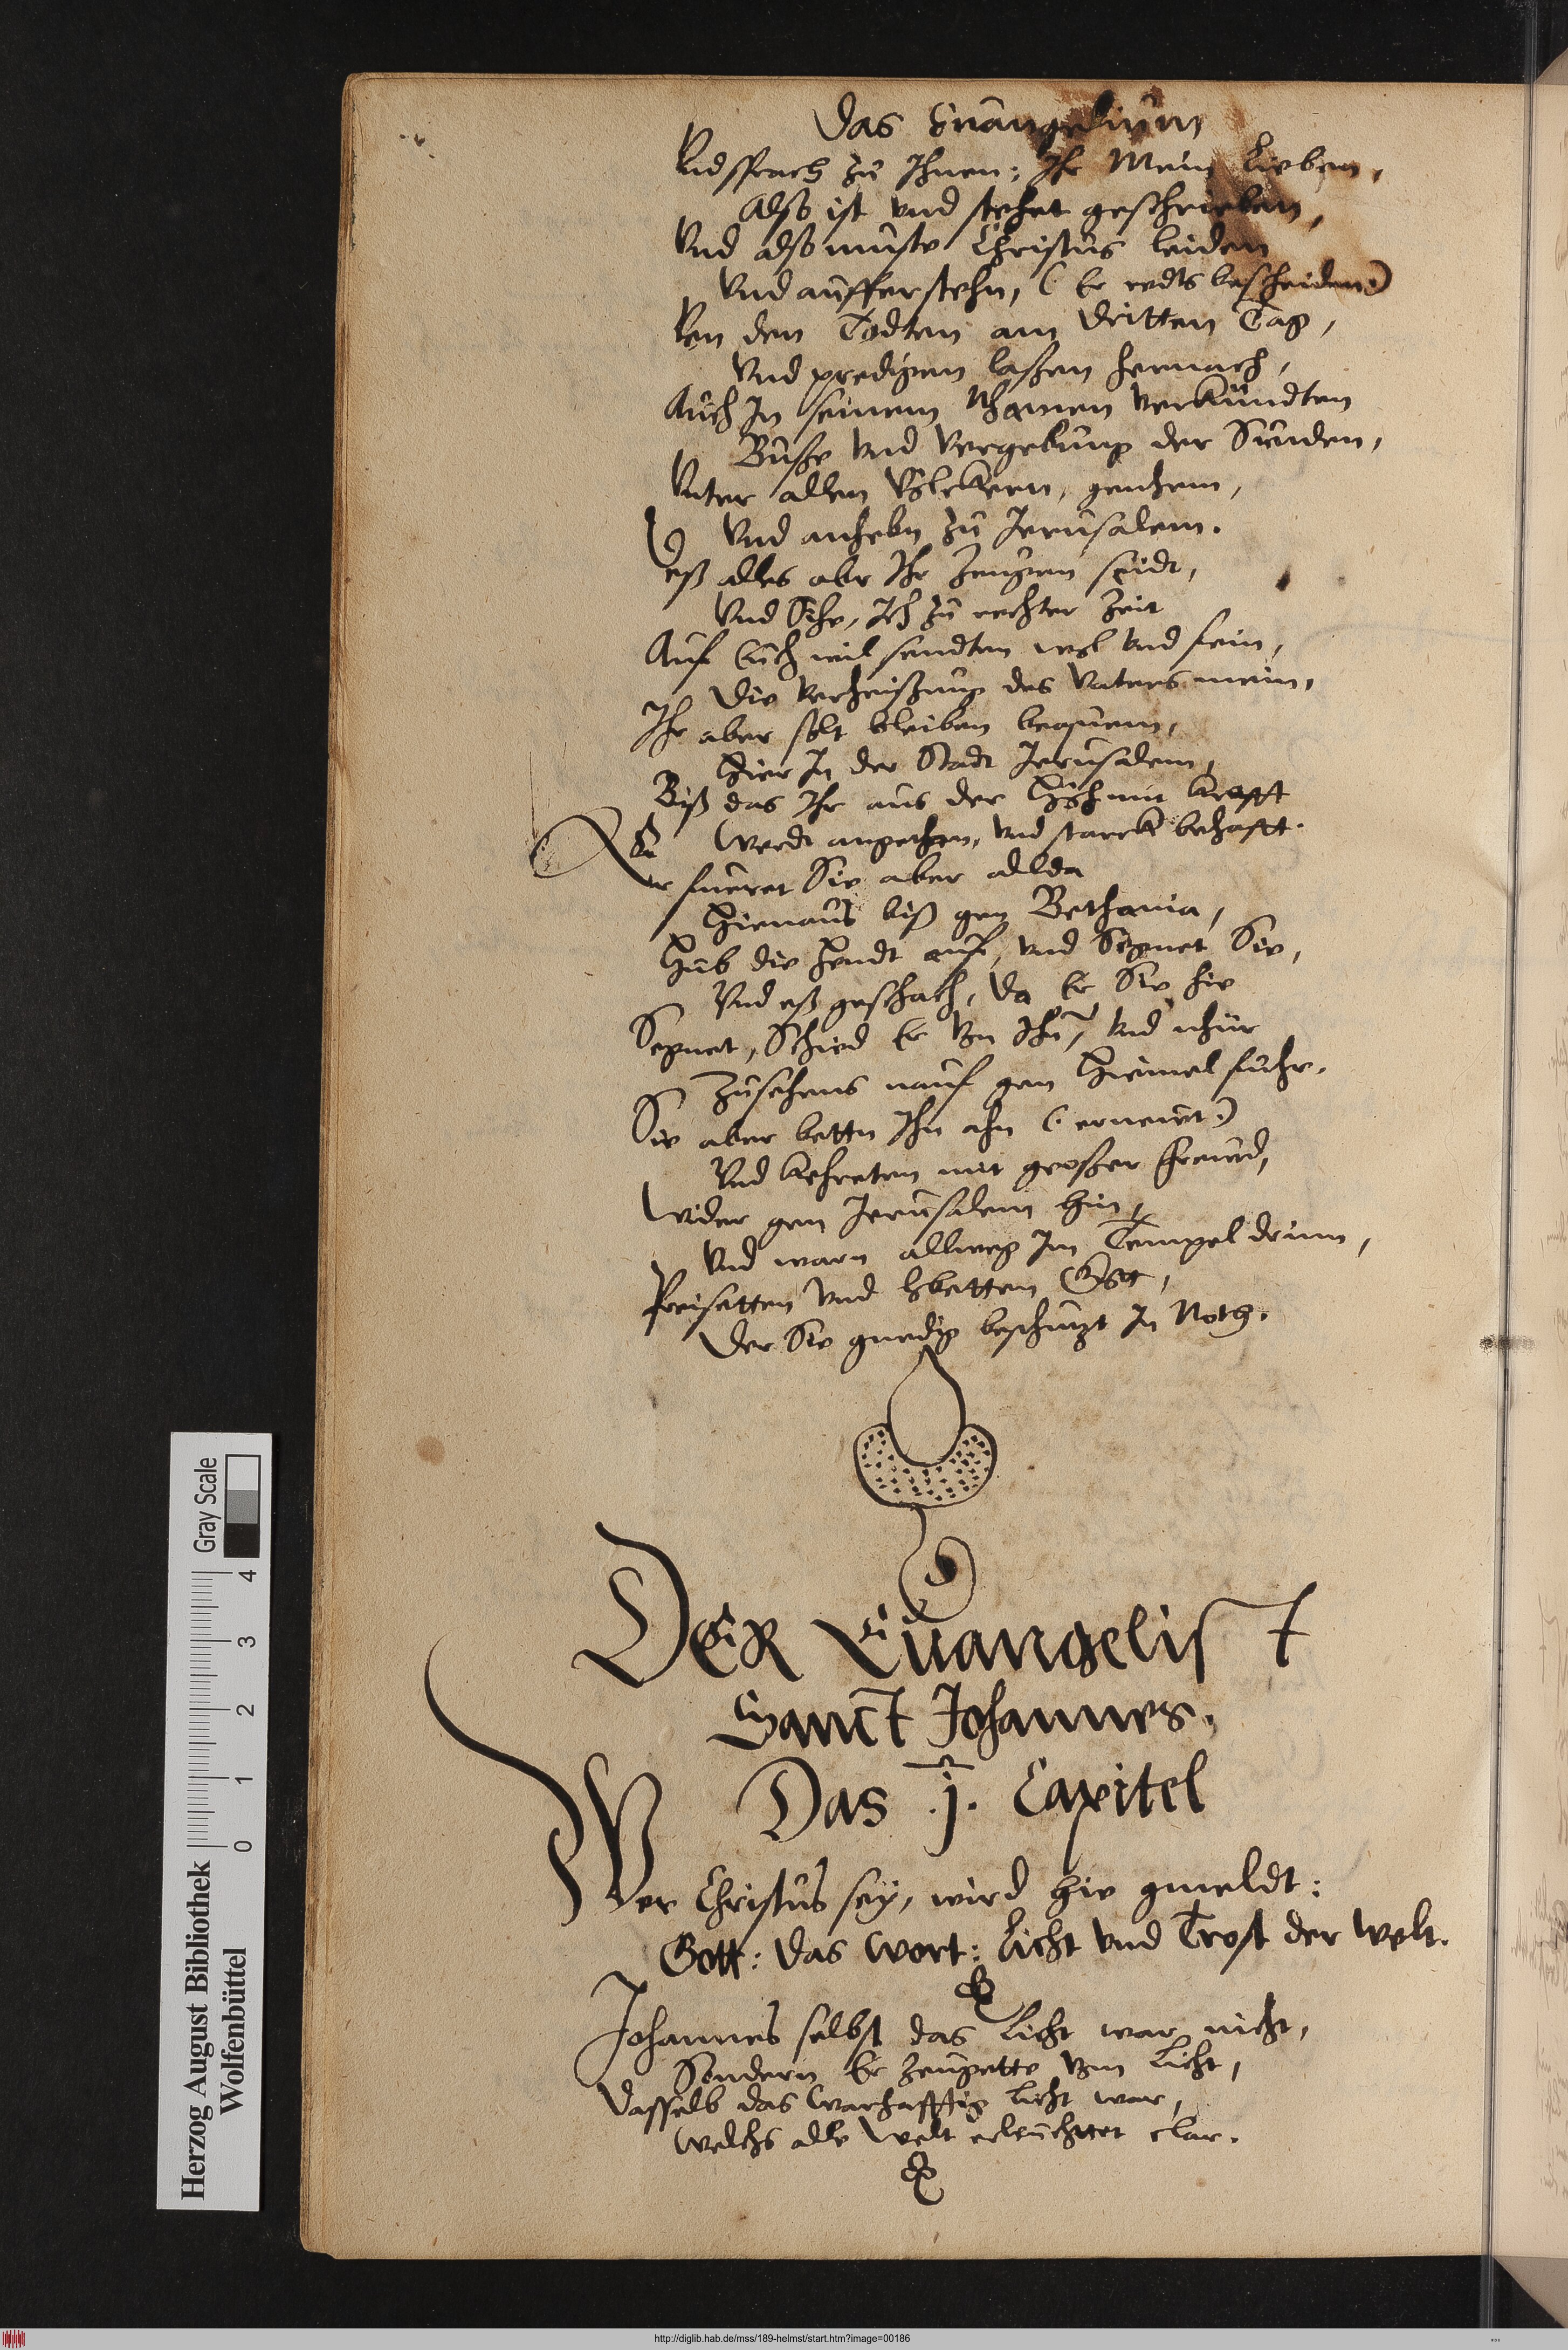 Das Euangelium
Vnd sprach zu Ihnen: Ihr Mein Lieben,
Also ist vnd stehet geschrieben,
Vnd also muste Christus leiden
Vnd aufferstehn, (Er redts bescheiden)
Von den Todten am Dritten Tag,
Vnd predigen laßen hernach,
Auch In seinem Nhamen verkündten
Buße vnd Vergebung der Sünden,
Vnter allen Völckern, genehem,
Vnd anhebn zu Jerusalem.
Deß alles abr Ihr Zeugen seidt,
Vnd Sihe, Ich zu rechter Zeit
Auf Euch wil sendten wol vnd fein,
Die Verheißung des Vaters mein,
Ihr aber solt bleiben bequem,
Hier In der Stadt Jerusalem,
Biß das Ihr aus der Höh mit krafft
Werdt angethon, vnd starck behafft.
Er fueret Sie aber allda
Hienaus biß gen Bethania,
Hub die Hendt auf, vnd Segnet Sie,
Vnd eß geschach, Da Er Sie hie
Segnet, Schied Er Von Ihn, vnd nhür
Zusehens nauf gen Hiemel fuhr.
Sie aber bettn Ihn ahn (erneut)
Vnd kehreten mit großer Freud,
Wider gen Jerusalem hin,
Vnd warn allweg Im Tempel drinn,
Preisetten Vnd lobetten Gott,
Der Sie gnedig beschutzt In Noth.
DER Euangelist
Sanct Johannes.
Das .j. Capitel
Wer Christus sey, wird hie gmeldt:
Gott: Das Wort: Licht vnd Trost der Welt.
Johannes selbst das Licht war nicht,
Sondern Er zeugette Vom Licht,
Dasselb das Warhafftig licht war,
Welchs alle Welt erleuchttet clar.
Herzog August Bibliothek
Wolfenbüttel
Gray Scale
0 1 2 3 4
http://diglib.hab.de/mss/189-helmst/start.htm?image=00186